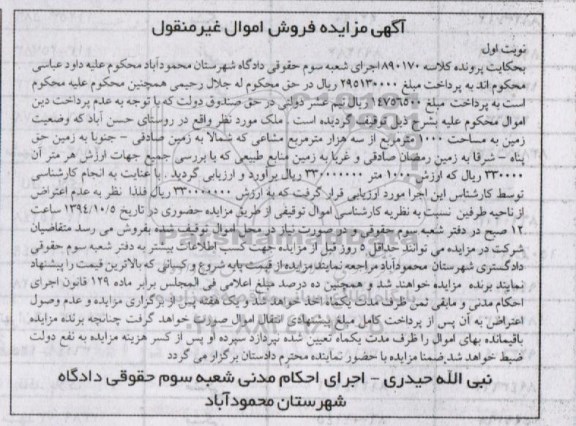 آگهی مزایده فروش اموال غیرمنقول
نوبت اول
بحکایت پرونده کلاسه ۸۹۰۱۷۰ اجرای شعبه سوم حقوقی دادگاه شهرستان محمودآباد محکوم علیه داود عباسی
محکوم اند به پرداخت مبلغ ۲۹۵۱۳۰۰۰۰ ریال در حق محکوم له جلال رحیمی همچنین محکوم علیه محکوم
است به پرداخت مبلغ ۱۴۷۵۶۵۰۰ ریال نیم عشر دولتی در حق صندوق دولت که با توجه به عدم پرداخت دین
اموال محکوم علیه بشرح ذیل توقیف گردیده است . ملک مورد نظر واقع در روستای حسن آباد که وضعیت
زمین به مساحت ۱۰۰۰ مترمربع از سه هزار مترمربع مشاعی که شمالا به زمین صادقی – جنوبا به زمین حق
پناه – شرقا به زمین رمضان صادقی و غربا به زمین منابع طبیعی که با بررسی جمیع جهات ارزش هر متر آن
۳۳۰۰۰۰ ریال که ارزش ۱۰۰۰ متر ۳۳۰۰۰۰۰۰۰ ریال برآورد و ارزیابی گردید . با عنایت به انجام کارشناسی
توسط کارشناس این اجرا مورد ارزیابی قرار گرفت که به ارزش ۳۳۰۰۰۰۰۰۰ ریال فلذا نظر به عدم اعتراض
از ناحیه طرفین نسبت به نظریه کارشناسی اموال توقیفی از طریق مزایده حضوری در تاریخ ۱۳۹۴/۱۰/۵ ساعت
۱۲ صبح در دفتر شعبه سوم حقوقی و در صورت نیاز در محل اموال توقیف شده بفروش می رسد متقاضیان
شرکت در مزایده می توانند حداقل ۵ روز قبل از مزایده جهت کسب اطلاعات بیشتر به دفتر شعبه سوم حقوقی
دادگستری شهرستان محمودآباد مراجعه نمایند مزایده از قیمت پایه شروع و کسانی که بالاترین قیمت را پیشنهاد
نمایند برنده مزایده خواهند شد و همچنین ده درصد مبلغ اعلامی فی المجلس برابر ماده ۱۲۹ قانون اجرای
احکام مدنی و مابقی ثمن ظرف مدت یکماه اخذ خواهد شد و یک هفته پس از برگزاری مزایده و عدم وصول
اعتراض به آن پس از پرداخت کامل مبلغ پیشنهادی انتقال اموال صورت خواهد گرفت چنانچه برنده مزایده
باقیمانده بهای اموال را ظرف مدت یکماه تعیین شده نپردازد سپرده او پس از کسر هزینه مزایده به نفع دولت
ضبط خواهد شد ضمنا مزایده با حضور نماینده محترم دادستان برگزار می گردد
نبی الله حیدری – اجرای احکام مدنی شعبه سوم حقوقی دادگاه
شهرستان محمودآباد